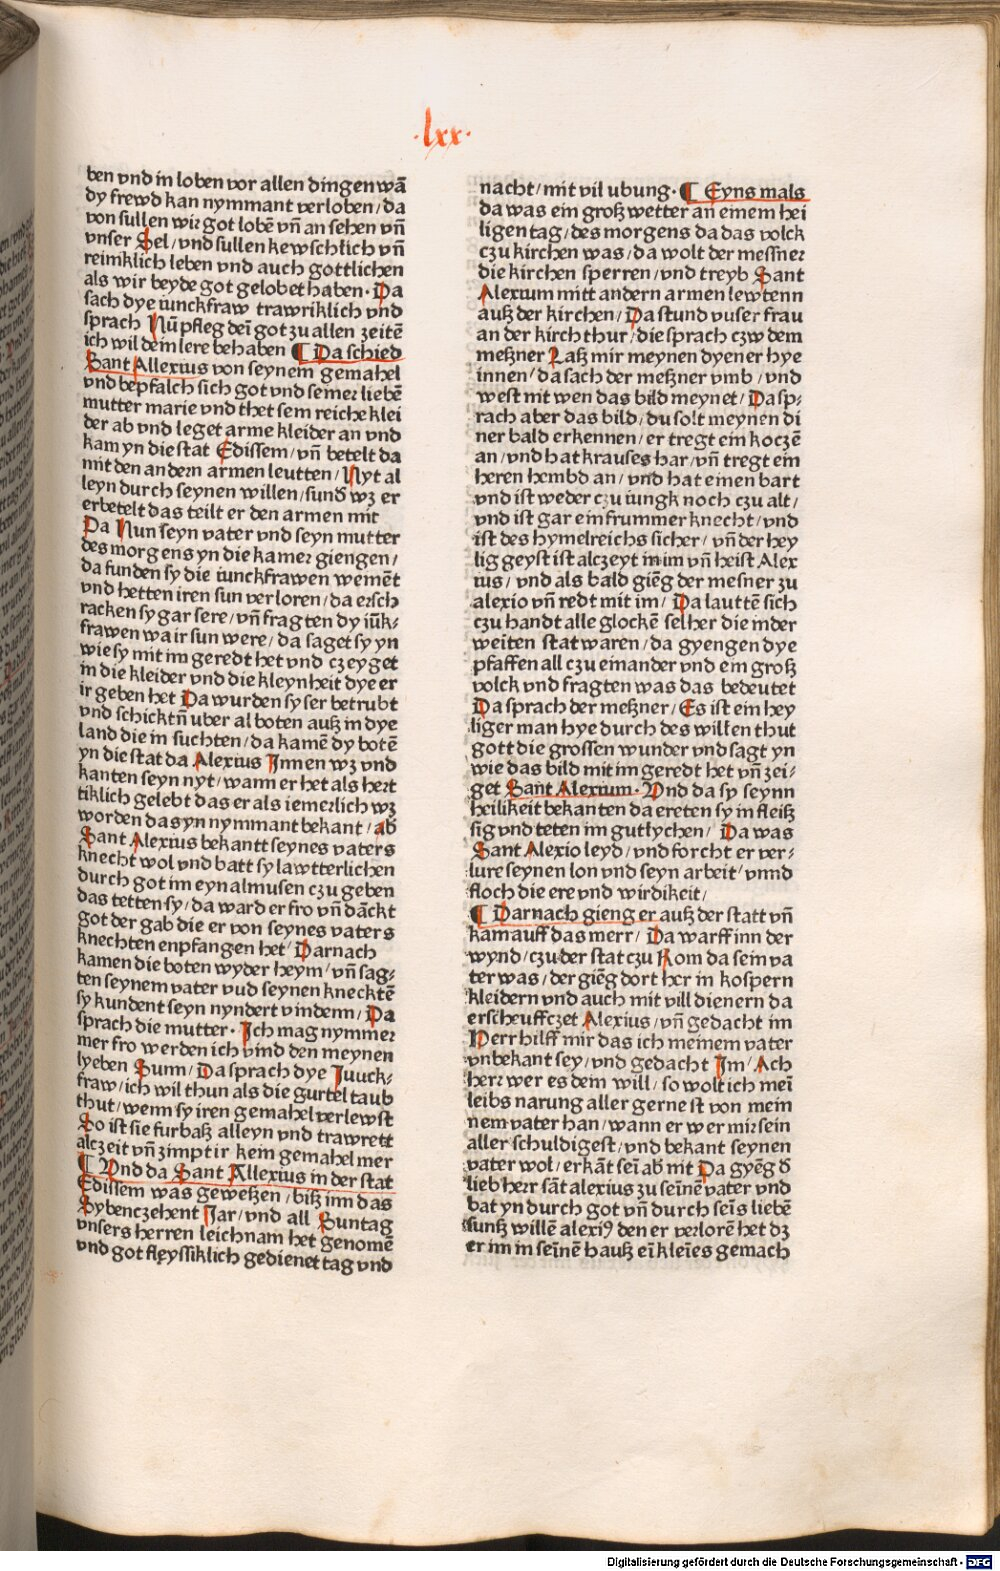 ·lxx·
ben vnd in loben vor allen dingen wā
dy frewd kan nymmant verloben/da
von sullen wir got lobē vn̄ an sehen vn̄
vnser Sel/vnd sullen kewschlich vn̄
reimklich leben vnd auch gottlichen
als wir beyde got gelobet haben· Da
sach dye iunckfraw trawriklich vnd
sprach Nū pfleg deī got zu allen zeitē
ich wil deim lere behaben ¶ Da schied
Sant Allexius von seynem gemahel
vnd bepfalch sich got vnd semer liebē
mutter marie vnd thet sem reiche klei
der ab vnd leget arme kleider an vnd
kam yn die stat Edissem/vn̄ betelt da
mit den andern armen leutten/Nyt al
leyn durch seynen willen/sund̄ wz er
erbetelt das teilt er den armen mit
Da Nun seyn vater vnd seyn mutter
des morgens yn die kamer giengen/
da funden sy die iunckfrawen wemēt
vnd hetten iren sun verloren/da ersch
racken sy gar sere/vn̄ fragten dy iūk⸗
frawen wa ir sun were/da saget sy yn
wie sy mit im geredt het vnd czeyget
in die kleider vnd die kleynheit dye er
ir geben het Da wurden sy ser betrubt
vnd schicktn̄ uber al boten auß in dye
land die in suchten/da kamē dy botē
yn die stat da Alexius Innen wz vnd
kanten seyn nyt/wann er het als hert
tiklich gelebt das er als iemerlich wz
worden das yn nymmant bekant/ab
Sant Alexius bekantt seynes vaters
knecht wol vnd batt sy lawtterlichen
durch got im eyn almusen czu geben
das tetten sy/da ward er fro vn̄ dāckt
got der gab die er von seynes vaters
knechten enpfangen het/Darnach
kamen die boten wyder heym/vn̄ sag⸗
ten seynem vater vud seynen knecktē
sy kundent seyn nyndert vindenn/Da
sprach die mutter· Ich mag nymmer
mer fro werden ich vind den meynen
lyeben Sunn/Da sprach dye Juuck⸗
fraw/ich wil thun als die gurtel taub
thut/wenn sy iren gemahel verlewst
So ist sie furbaß alleyn vnd trawrett
alczeit vn̄ zimpt ir kem gemahel mer
¶ Vnd da Sant Allexius in der stat
Edissem was gewetzen/biß inn das
Sybenczehent Jar/vnd all Suntag
vnsers herren leichnam het genomē
vnd got fleyssiklich gedienet tag vnd
nacht/mit vil ubung· ¶ Eyns mals
da was ein groß wetter an einem hei
ligen tag/des morgens da das volck
czu kirchen was/da wolt der messner
die kirchen sperren/vnd treyb Sant
Alexium mitt andern armen lewtenn
auß der kirchen/Da stund vuser frau
an der kirch thur/die sprach czw dem
meßner Laß mir meynen dyener hye
innen/da sach der meßner vmb/vnd
west nit wen das bild meynet/Da sp⸗
rach aber das bild/du solt meynen di
ner bald erkennen/er tregt ein koczē
an/vnd hat krauses har/vn̄ tregt ein
heren hembd an/vnd hat einen bart
vnd ist weder czu iungk noch czu alt/
vnd ist gar ein frummer knecht/vnd
ist des hymelreichs sicher/vn̄ der hey
lig geyst ist alczeyt in im vn̄ heist Alex
ius/vnd als bald giēg der mesner zu
alexio vn̄ redt mit im/Da lauttē sich
czu handt alle glockē selher die in der
weiten stat waren/da gyengen dye
pfaffen all czu einander vnd ein groß
volck vnd fragten was das bedeutet
Da sprach der meßner/Es ist ein hey
liger man hye durch des willen thut
gott die grossen wunder vnd sagt yn
wie das bild mit im geredt het vn̄ zei⸗
get Sant Alexium· Vnd da sy seynn
heilikeit bekanten da ereten sy in fleiß
sig vnd teten im gutlychen/Da was
Sant Alexio leyd/vnd forcht er ver⸗
lure seynen lon vnd seyn arbeit/vnnd
floch die ere vnd wirdikeit/
¶ Darnach gieng er auß der statt vn̄
kam auff das merr/Da warff inn der
wynd/czu der stat czu Rom da sein va
ter was/der giēg dort her in kospern
kleidern vnd auch mit vill dienern da
erscheuffczet Alexius/vn̄ gedacht im
Herr hilff mir das ich meinem vater
vnbekant sey/vnd gedacht Im/Ach
herr wer es dem will/so wolt ich meī
leibs narung aller gernest von mein
nem vater han/wann er wer mir sein
aller schuldigest/vnd bekant seynen
vater wol/er kāt seī ab nit Da gyēg d̄
lieb herr sāt alexius zu seīnē vater vnd
bat yn durch got vn̄ durch seīs liebē
sunß willē alexiꝰ den er verlorē het dz
er im in seīnē hauß eī kleīes gemach
Digitalisierung gefördert durch die Deutsche Forschungsgemeinschaft - DFG